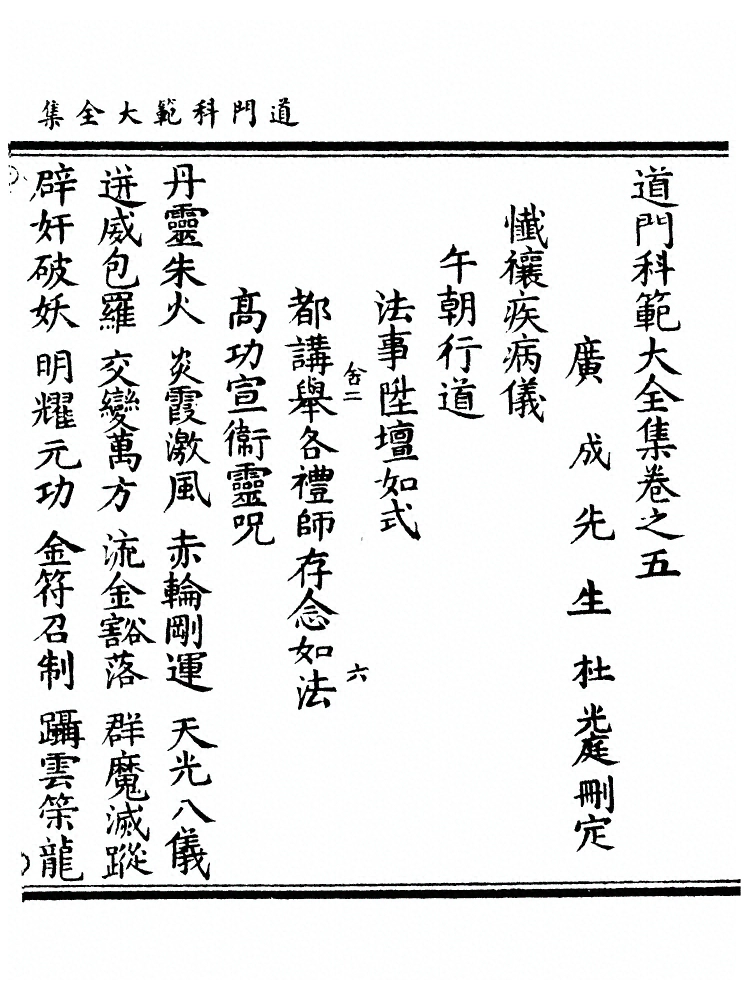 道門科範大全集
道門科範大全集卷之五
廣成先生杜光庭刪定
懺禳疾病儀
午朝行道
法事陞壇如式
舍二
六
都講舉各禮師存念如法
高功宣衛靈呪
丹靈朱火 炎霞激風 赤輪剛運 天光八儀
迸威包羅 交變萬方 流金豁落 群魔滅蹤
辟奸破妖 明耀元功 金符召制 躡雲䇿龍